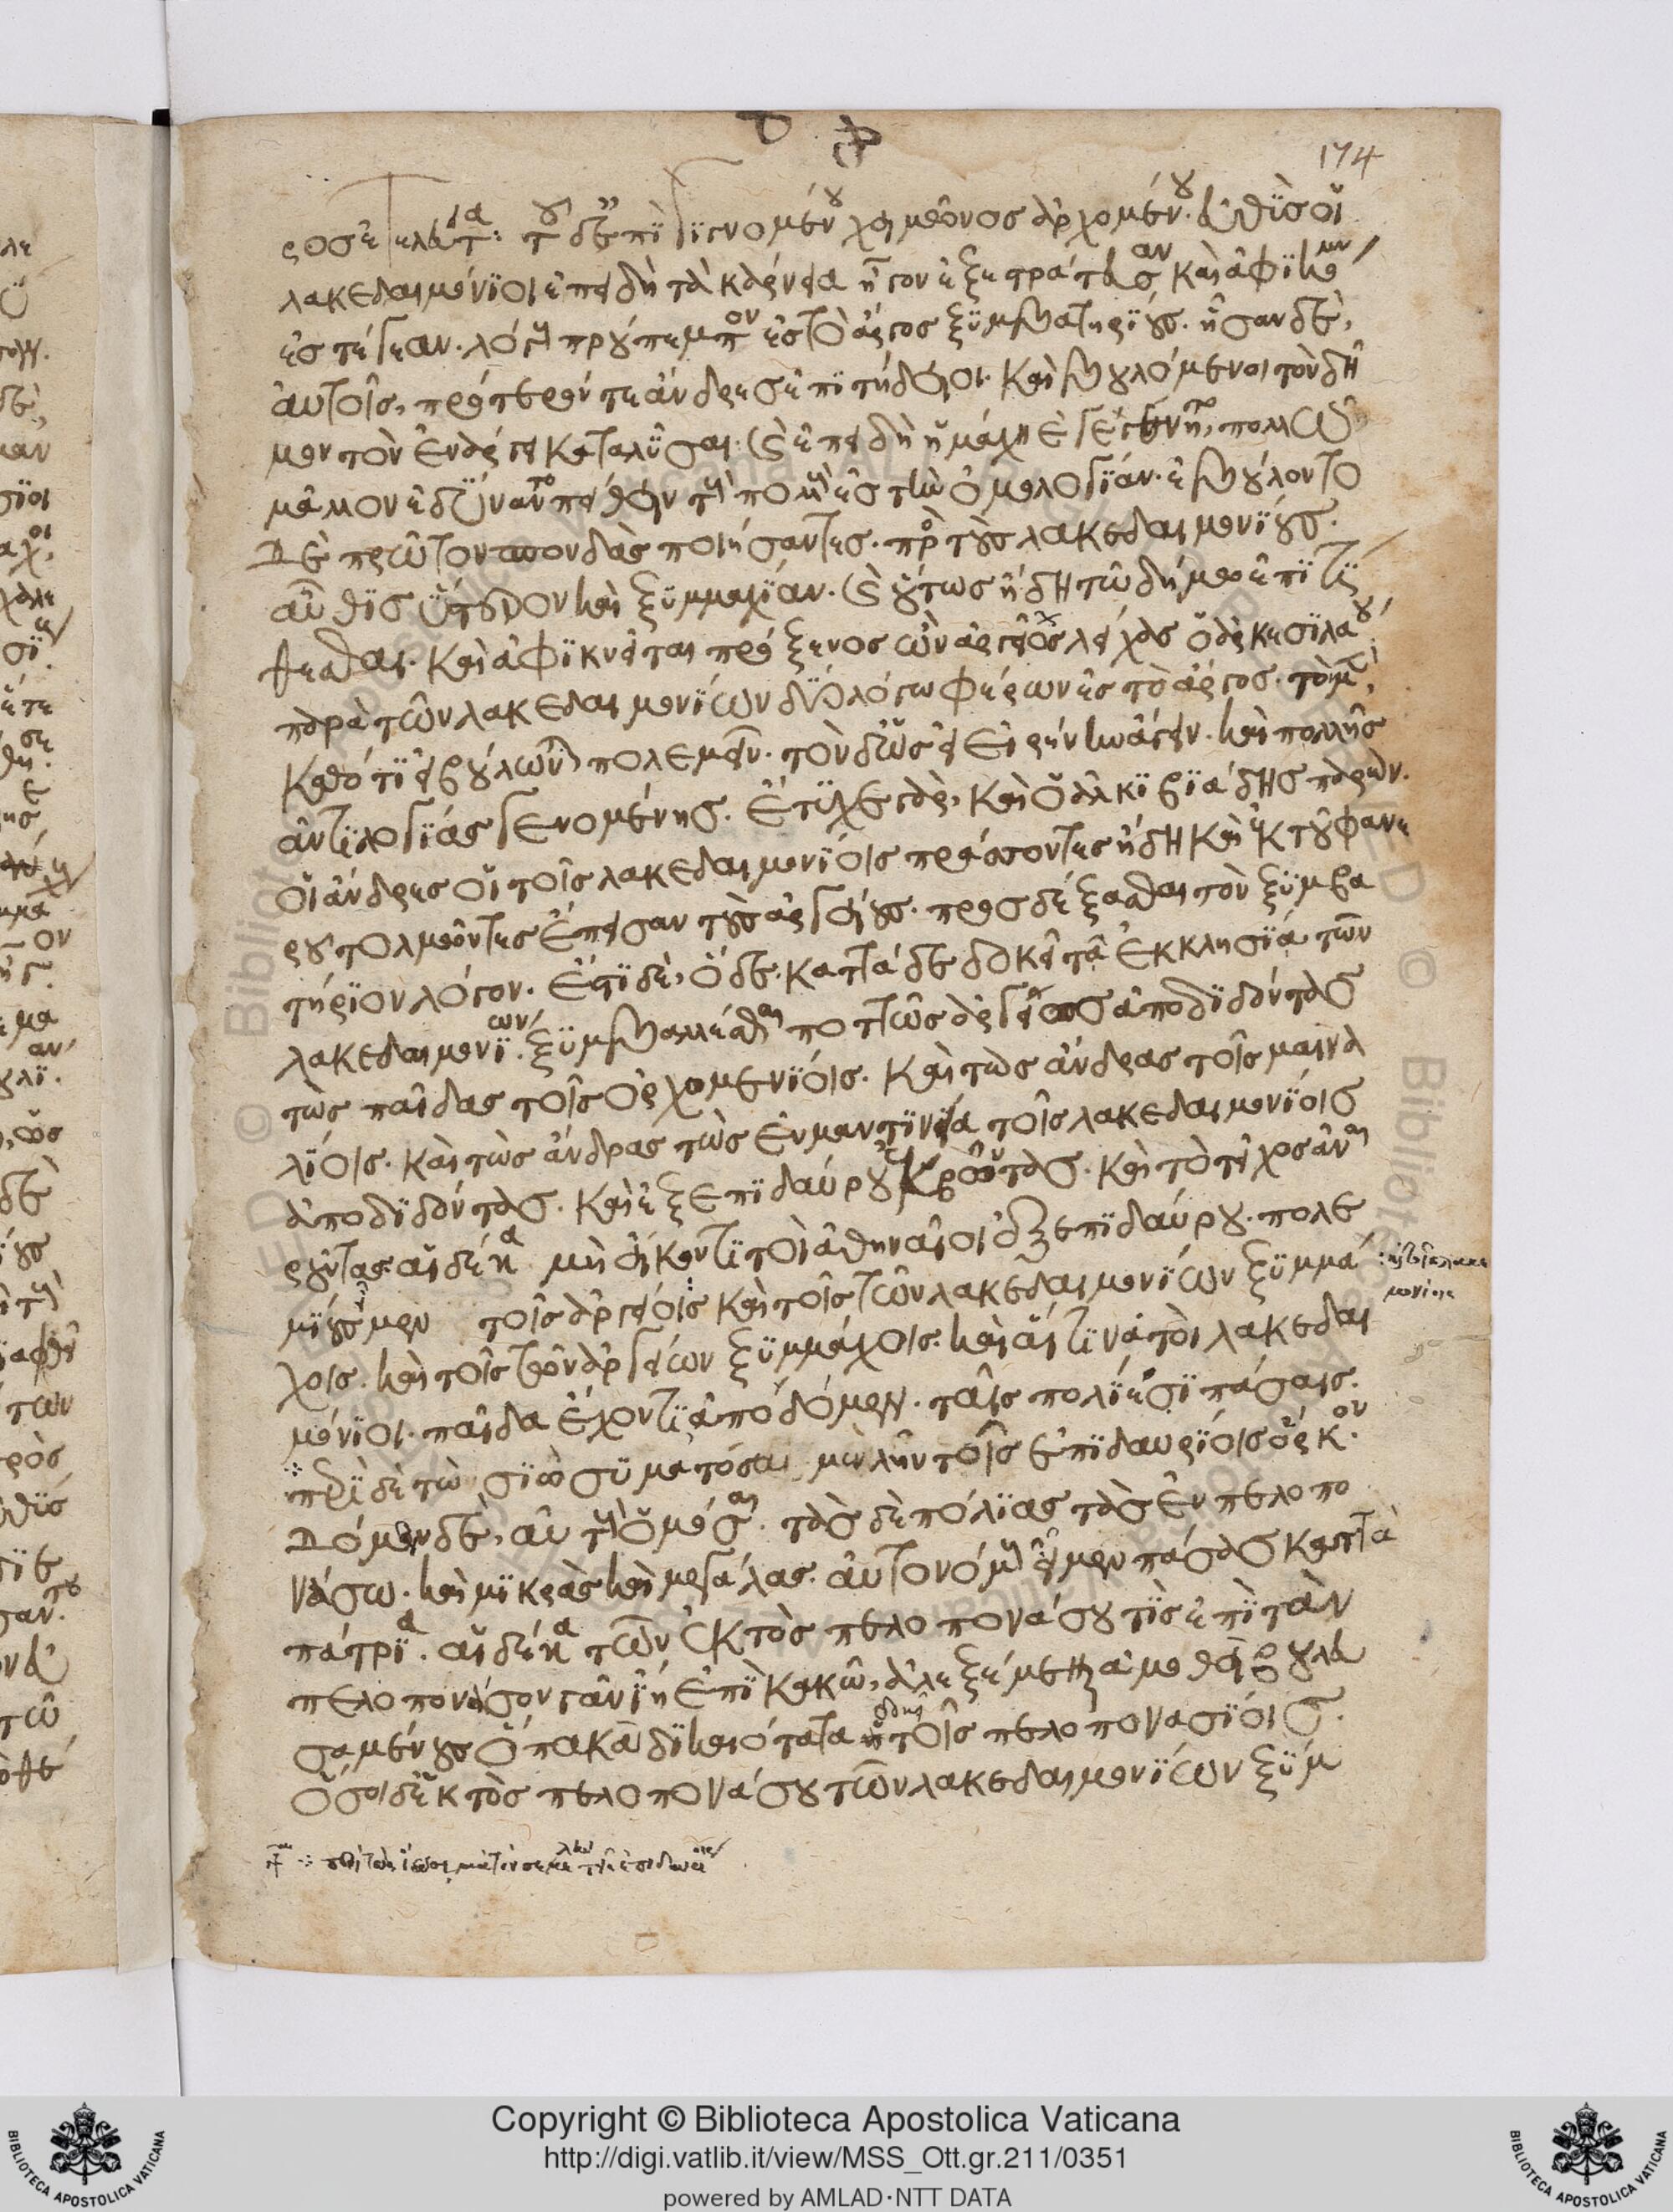 174
ρος ἐτελεύτα: τοῦ δ' ἐπιγιγνομένου χειμῶνος ἀρχομένου. εὐθὺς οἱ
λακεδαιμόνιοι ἐπειδὴ τὰ κάρνεια ἤγαγον ἐξεστράτευσαν καὶ ἀφικόμενοι
ἐς τέγεαν. λόγους προύπεμπον ἐς τὸ ἄργος ξυμβατηρίους. ἦσαν δὲ,
αὐτοῖς, πρότερόν τε ἄνδρες ἐπιτήδειοι. καὶ βουλόμενοι τὸν δῆ
μον τὸν ἐν ἄργει καταλῦσαι. καὶ ἐπειδὴ ἡ μάχη ἐγεγένητο, πολλῶ
μᾶλλον ἐδύναντο πείθειν τοὺς πολλοὺς ἐς τὴν ὁμολογίαν. ἐβούλοντο
δὲ πρῶτον σπονδὰς ποιήσαντες. πρὸς τοὺς λακεδαιμονίους.
αὖθις ὕστερον καὶ ξυμμαχίαν. καὶ οὕτως ἤδη τῶ δήμω ἐπιτί
θεσθαι. καὶ ἀφικνεῖται πρόξενος ὢν ἀργείων λείχας ὁ ἀρκεσιλάου
παρὰ τῶν λακεδαιμονίων δύο λόγω φέρων ἐς τὸ ἄργος. τὸν μὲν,
καθότι εἰ βούλωνται πολεμεῖν. τὸν δ' ὡς εἰ εἰρήνην ἄγειν. καὶ πολλῆς
ἀντιλογίας γενομένης. ἔτυχε γὰρ, καὶ ὁ ἀλκιβιάδης παρών.
οἱ ἄνδρες οἱ τοῖς λακεδαιμονίοις πράσσοντες ἤδη καὶ ἐκ τοῦ φανε
ροῦ τολμῶντες ἔπεισαν τοὺς ἀργείους. προσδέξασθαι τὸν ξυμβα
τήριον λόγον. ἔστι δὲ, ὅδε. καττάδε δοκεῖ τᾶ ἐκκλησία τῶν
λακεδαιμονίων. ξυμβαλέσθαι ποττὼς ἀργείως ἀποδιδόντας
τὼς παῖδας τοῖς ὀρχομενίοις. καὶ τὼς ἄνδρας τοῖς μαινα
λίοις. καὶ τὼς ἄνδρας τὼς ἐν μαντινεία τοῖς λακεδαιμονίοις
ἀποδιδόντας. καὶ ἐξ ἐπιδαύρου ἐκβῶντας. καὶ τὸ τεῖχος ἀναι
ροῦντας. αἰ δέ κα μὴ εἴκοντι τοὶ ἀθηναῖοι ἐξ ἐπιδαύρου. πολε
μίους εἶμεν τοῖς ἀργείοις καὶ τοῖς τῶν λακεδαιμονίων ξυμμά
χοις. καὶ τοῖς τῶν ἀργείων ξυμμάχοις. καὶ αἴ τινα τοὶ λακεδαι
μόνιοι. παῖδα ἔχοντι ἀποδόμεν. ταῖς πολίεσι πάσαις.
περὶ δὲ τῶ σιῶ σύματος αἰ μὲν λῆν τοῖς ἐπιδαυρίοις ὅρκον.
δόμεν δὲ, αὐτοὺς ὀμόσαι. τὰς δὲ πόλιας τὰς ἐν πελοπο
νάσω. καὶ μικρὰς καὶ μεγάλας. αὐτονόμους εἶμεν πάσας καττὰ
πάτρια. αἰ δέ κα τῶν ἐκτὸς πελοπονάσου τὶς ἐπὶ τὰν
πελοπόνασον γᾶν ἴη ἐπὶ κακῶ, ἀλεξέμεναι ἀμόθει βουλευ
σαμένους ὅπα κα δικαιότατα δοκῆ τοῖς πελοπονασίοις.
ὅσοι δ' ἐκτὸς πελοπονάσου τῶν λακεδαιμονίων ξύμ
Copyright © Biblioteca Apostolica Vaticana
http://digi.vatlib.it/view/MSS_Ott.gr.211/0351
powered by AMLAD·NTT DATA
BIBLIOTECA APOSTOLICA VATICANA
BIBLIOTECA APOSTOLICA VATICANA